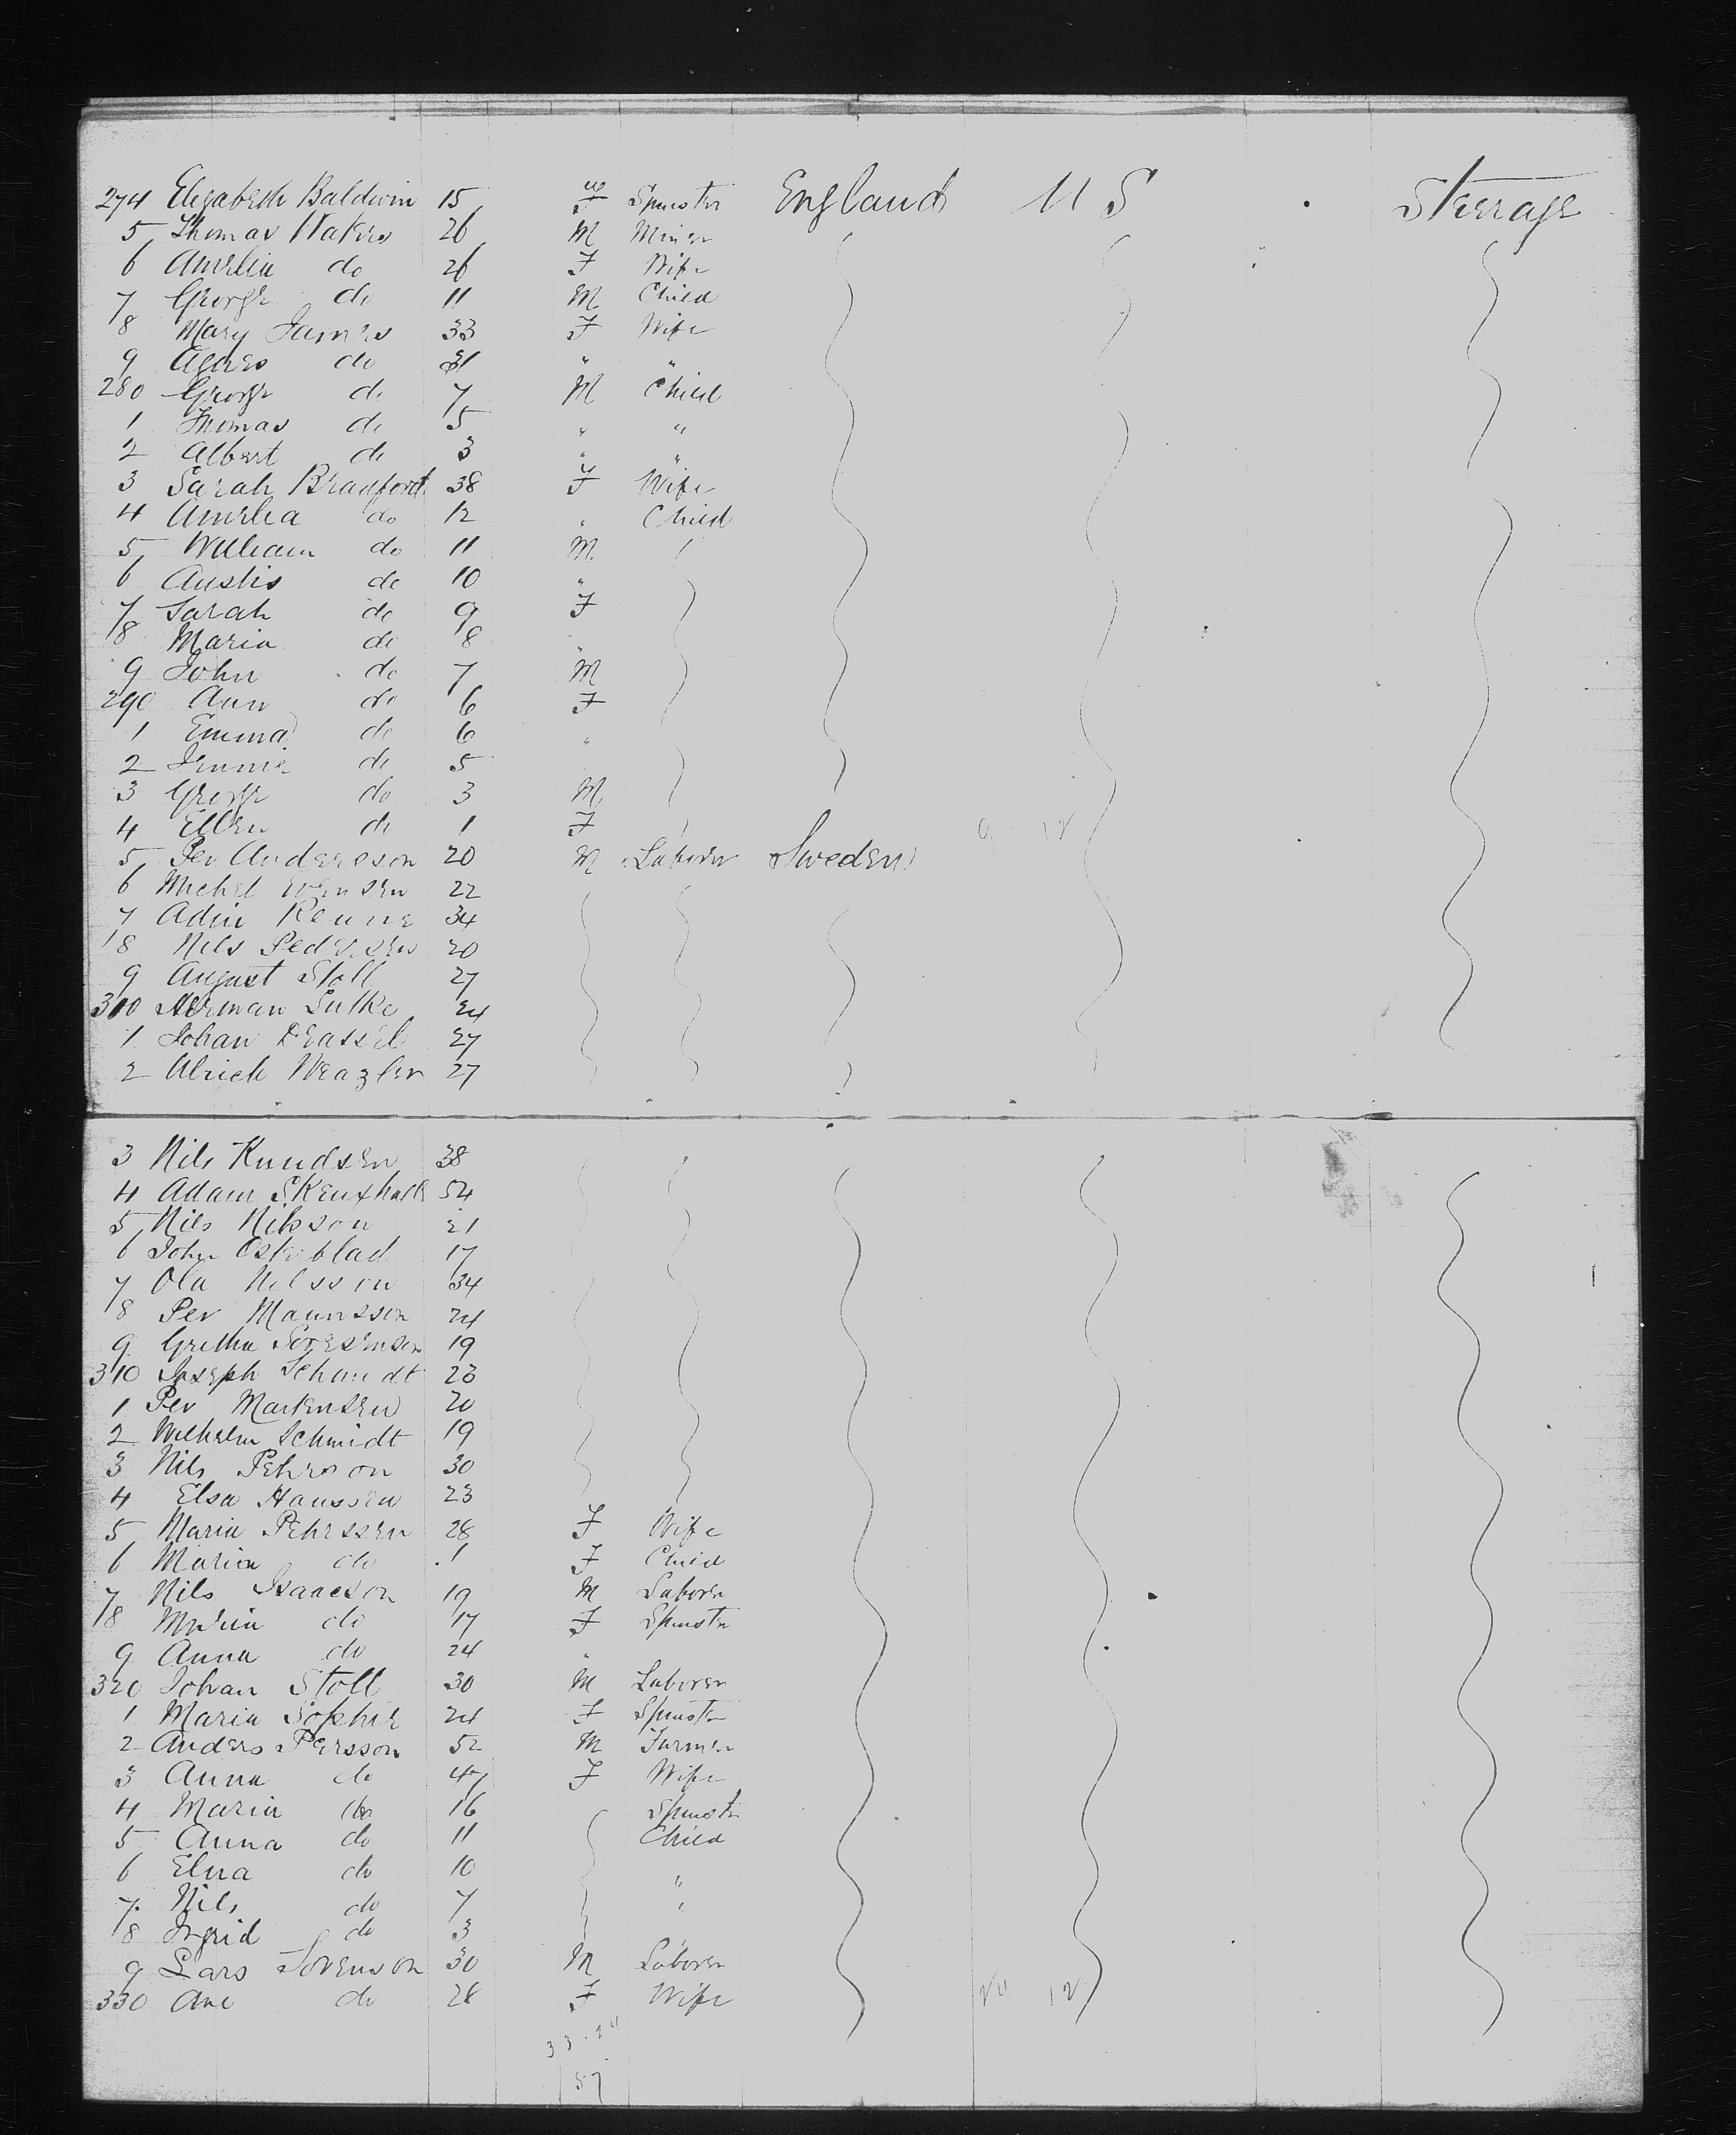 274 Elizabeth Baldwin 15 F Spinster England U S Steerage
5 Thomas Waters 26 M Miner
6 Amelia do 26 F Wife
7 George do 11 M Child
8 Mary James 33 F Wife
9 Agnes do 31 " "
280 George do 7 M Child
1 Thomas do 5 " "
2 Albert do 3 " "
3 Sarah Bradford 38 F Wife
4 Amelia do 12 " Child
5 William do 11 M
6 Austis do 10 "
7 Sarah do 9 F
8 Maria do 8 "
9 John do 7 M
290 Ann do 6 F
1 Emma do 6 "
2 Jennie do 5
3 George do 3 M
4 Ellen do 1 F
5 Per Andersson 20 M Laborer Sweden
6 Michel 22
7 Adin 34
8 Nils Pedersen 20
9 August Stoll 27
300 Herman Lutke 24
1 Johan Drassel 27
2 Alrich Weazler 27
3 Nils Knudsen 38
4 Adam 54
5 Nils Nilsson 21
6 John 17
7 Ola Nilsson 34
8 Per Maunsson 24
9 Gretha Soresenson 19
310 Joseph Schmidt 23
1 Per Martensen 20
2 Wilhelm Schmidt 19
3 Nils Pehrson 30
4 Elsa Hanssen 23
5 Maria Pehrssen 28 F Wife
6 Maria do 1 F Child
7 Nils Isaacson 19 M Laborer
8 Maria do 17 F Spinster
9 Anna do 24 "
320 Johan Stoll 30 M Laborer
1 Maria Sophie 24 F Spinster
2 Anders Persson 52 M Farmer
3 Anna do 47 F Wife
4 Maria do 16 Spinster
5 Anna do 11 Child
6 Elna do 10 "
7 Nils do 7 "
8 Ingrid do 3
9 Lars Sorenson 30 M Laborer
330 Ane do 28 F Wife
33 . 24
57